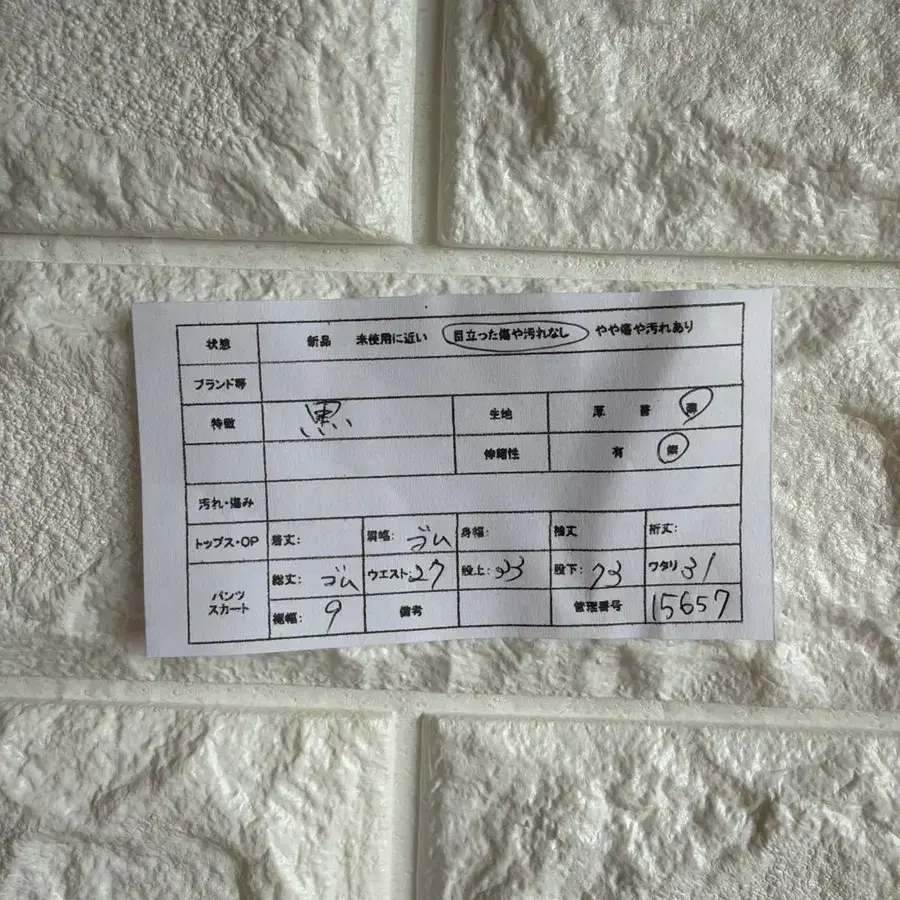 状態 新品 未使用に近い 目立った傷や汚れなし やや傷や汚れあり
ブランド等
特徴 黒 生地 厚 普 薄
伸縮性 有 無
汚れ・傷み
トップス・OP 着丈: 肩幅: ゴム 身幅: 袖丈 裄丈:
パンツ スカート 総丈: ゴム ウエスト:27 股上:33 股下:73 ワタリ 31
裾幅: 9 備考 管理番号 15657